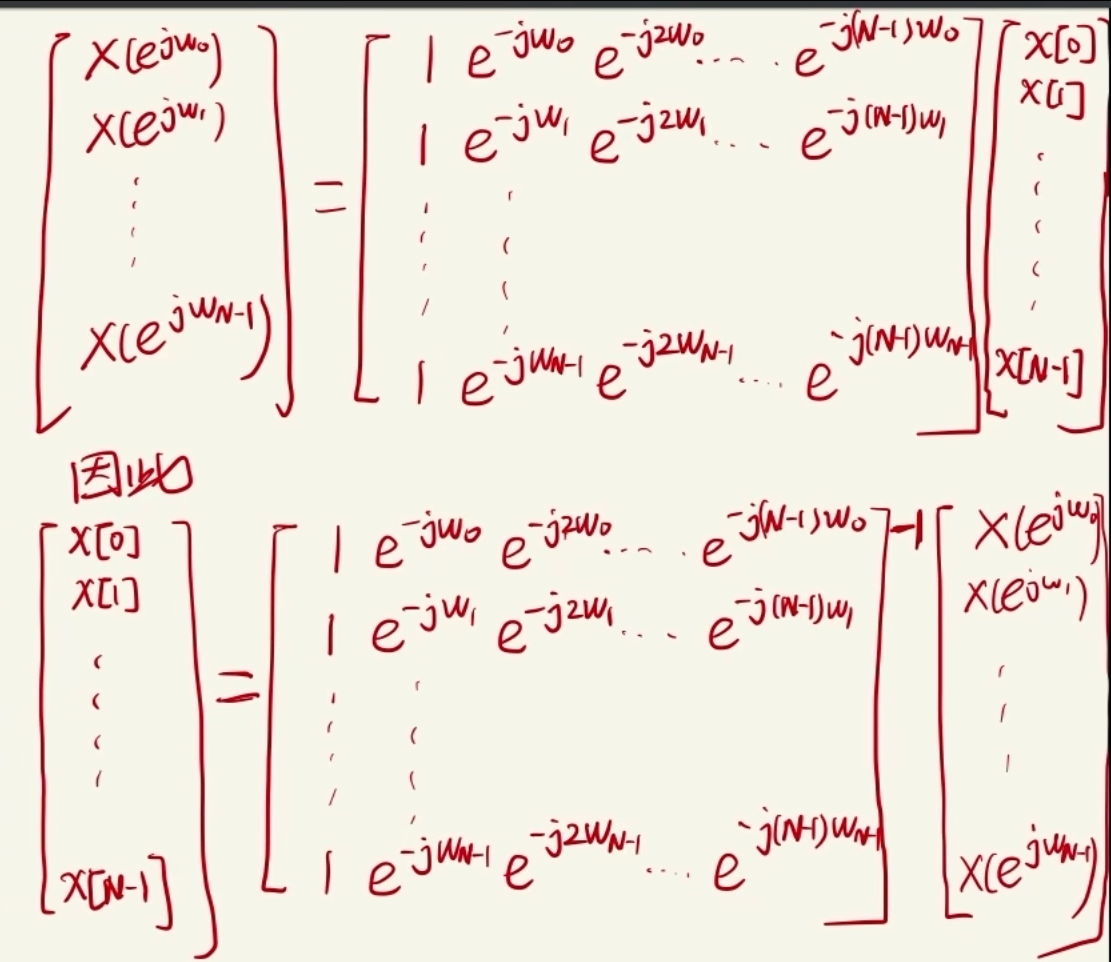 [X(e^{jw_0}) X(e^{jw_1}) ⋮ X(e^{jw_{N-1}})] = [1 e^{-jw_0} e^{-j2w_0} ⋯ e^{-j(N-1)w_0}; 1 e^{-jw_1} e^{-j2w_1} ⋯ e^{-j(N-1)w_1}; ⋮ ⋮; 1 e^{-jw_{N-1}} e^{-j2w_{N-1}} ⋯ e^{-j(N-1)w_{N-1}}] [x[0] x[1] ⋮ x[N-1]]
因此
[x[0] x[1] ⋮ x[N-1]] = [1 e^{-jw_0} e^{-j2w_0} ⋯ e^{-j(N-1)w_0}; 1 e^{-jw_1} e^{-j2w_1} ⋯ e^{-j(N-1)w_1}; ⋮ ⋮; 1 e^{-jw_{N-1}} e^{-j2w_{N-1}} ⋯ e^{-j(N-1)w_{N-1}}]^{-1} [X(e^{jw_0}) X(e^{jw_1}) ⋮ X(e^{jw_{N-1}})]